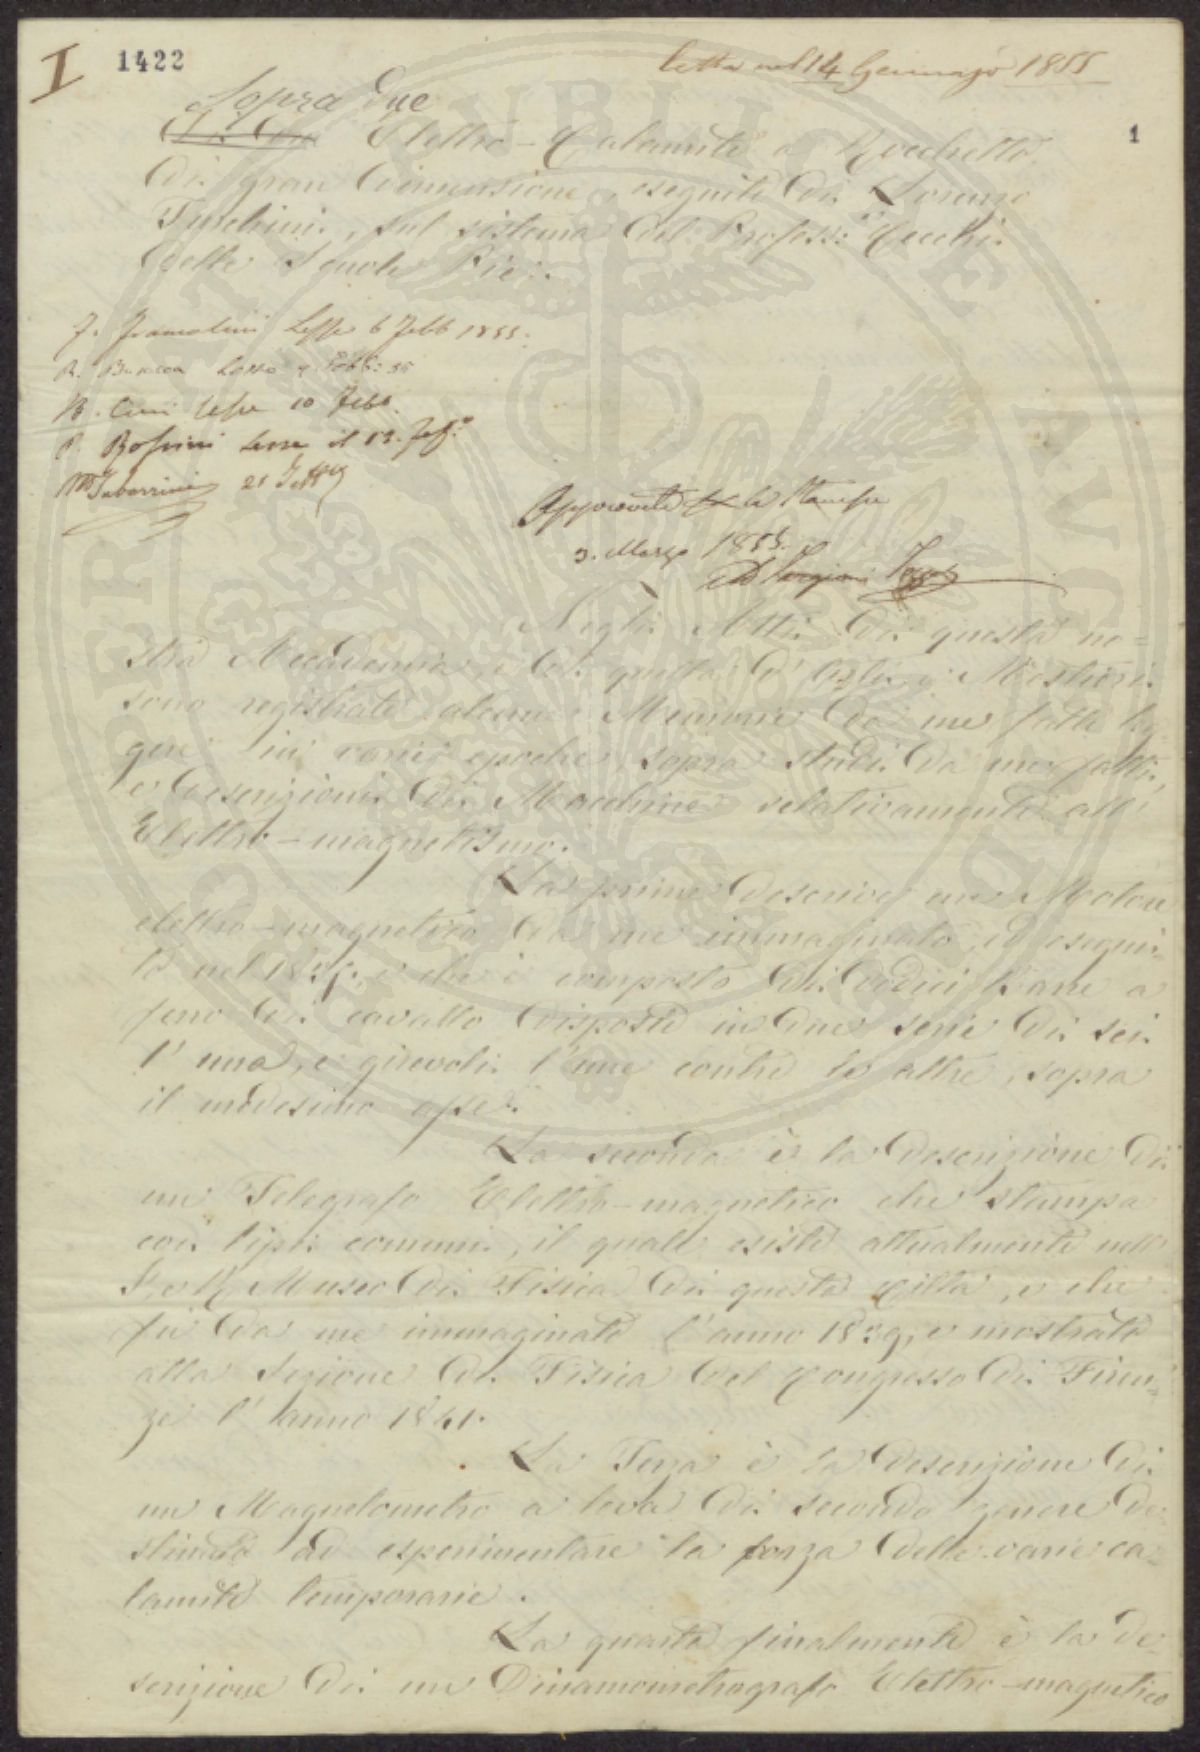 I 1422
letta nel 14 Gennajo 1855
1
Sopra due
Elettro-Calamite a Rocchetto
di gran dimensione, eseguite da Lorenzo
Turchini, sul sistema del Profess:e Cecchi
delle Scuole Pie.
Lesse 6 Febb 1855.
Lesse 7. Febb: 55
lesse 10 Febb.
lesse il 12. Feb.o
M Tabarrini 21 Febb
Approvata per la Stampa
3. Marzo 1855.
Negli Atti di questa no-
stra Accademia, e di quella d'Arti e Mestieri
sono registrate alcune Memorie da me fatte leg-
gere in varie epoche, sopra studi da me fatti,
e descrizioni di Macchine relativamente all'
Elettro-magnetismo.
La prima descrive un Motore
elettro-magnetico da me immaginato, ed esegui-
to nel e che è composto di dodici Barre a
ferro di cavallo disposte in due serie di sei
l'una, e girevoli l'une contro le altre, sopra
il medesimo asse.
La seconda è la descrizione di
un Telegrafo Elettro-magnetico che stampa
coi tipi comuni, il quale esiste attualmente nell'
I. e R. Museo di Fisica di questa Città, e che
fu da me immaginato l'anno 1839, e mostrato
alla Sezione di Fisica del Congresso di Firen-
ze l'anno 1841.
La Terza è la descrizione di
un Magnetometro a leva di secondo genere de-
stinato ad esperimentare la forza delle varie ca-
lamite temporarie.
La quarta finalmente è la de-
scrizione di un Dinamometrografo Elettro-magnetico